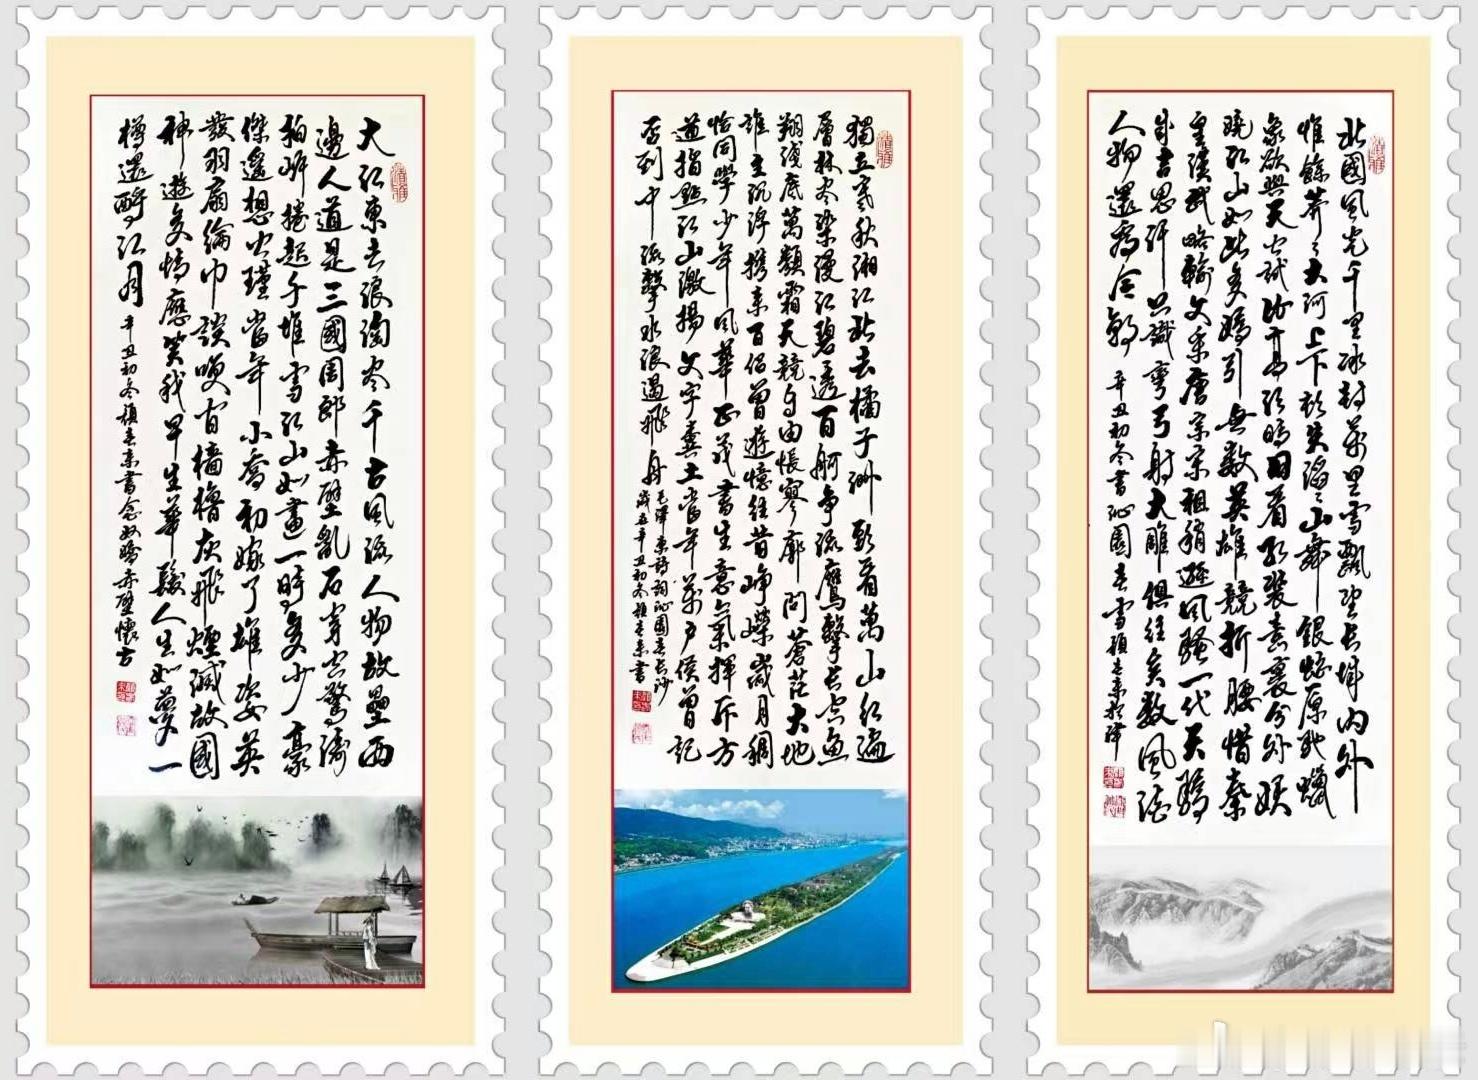 大江東去浪淘尽千古風流人物故壘西
邊人道是三國周郎赤壁亂石穿空驚濤
拍岸捲起千堆雪江山如畫一時多少豪
傑遙想公瑾當年小喬初嫁了雄姿英
發羽扇綸巾談笑間檣櫓灰飛煙滅故國
神遊多情應笑我早生華髮人生如夢一
樽還酹江月 辛丑初冬 春来書念奴嬌赤壁懷古
獨立寒秋湘江北去橘子洲頭看萬山紅遍
層林尽染漫江碧透百舸争流鷹擊長空魚
翔淺底萬類霜天競自由悵寥廓問蒼茫大地
誰主沉浮攜来百侶曾遊憶往昔崢嶸歲月稠
恰同學少年風華正茂書生意氣揮斥方
遒指點江山激揚文字糞土當年萬户侯曾記
否到中流擊水浪遏飛舟
毛澤東詩詞沁園春長沙
歲在辛丑初冬 春来書
北國風光千里冰封萬里雪飄望長城内外
惟餘莽々大河上下頓失滔々山舞銀蛇原馳蠟
象欲與天公試比高須晴日看紅裝素裹分外妖
嬈江山如此多嬌引無數英雄競折腰惜秦
皇漢武略輸文采唐宗宋祖稍遜風騷一代天驕
成吉思汗只識彎弓射大雕俱往矣數風流
人物還看今朝 辛丑初冬書沁園春雪 春来於津